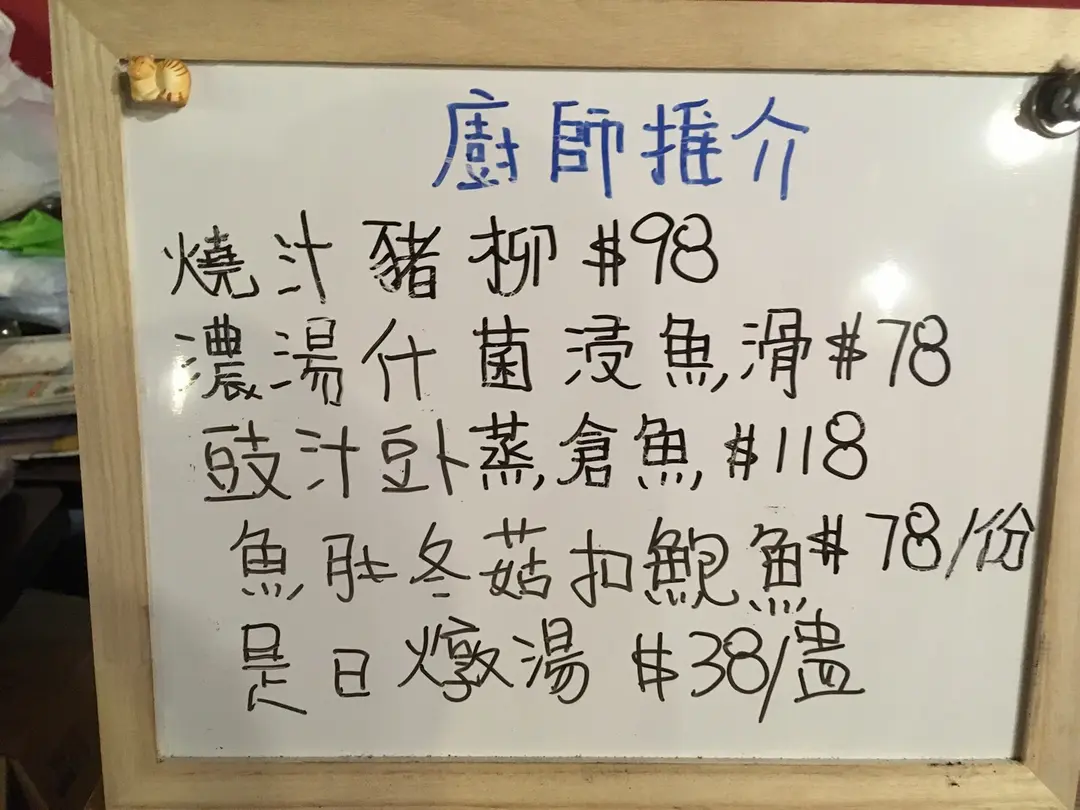 廚師推介
燒汁豬柳 $98
濃湯什菌浸魚滑 $78
豉汁豆卜蒸倉魚 $118
魚肚冬菇扣鮑魚 $78/份
是日燉湯 $38/盅